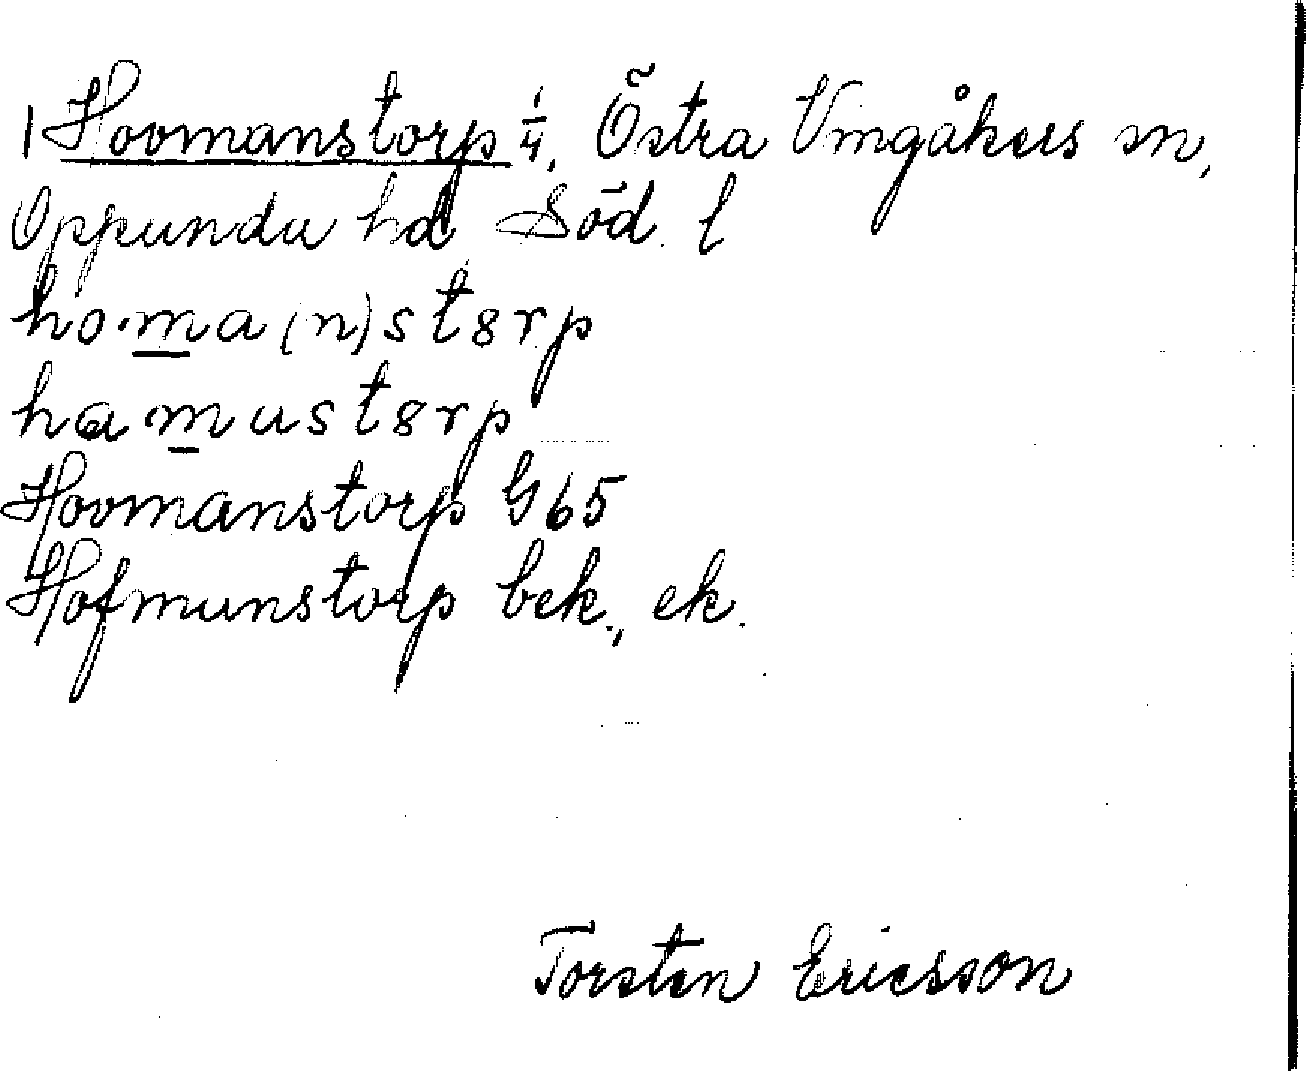 1 Hovmanstorp 1/4, Östra Vingåkers sn,
Oppunda hd, Söd. l
ho·ma(n)st8rp
hamust8rp
Hovmanstorp G65
Hofmanstorp bek., ek.
Torsten Ericsson